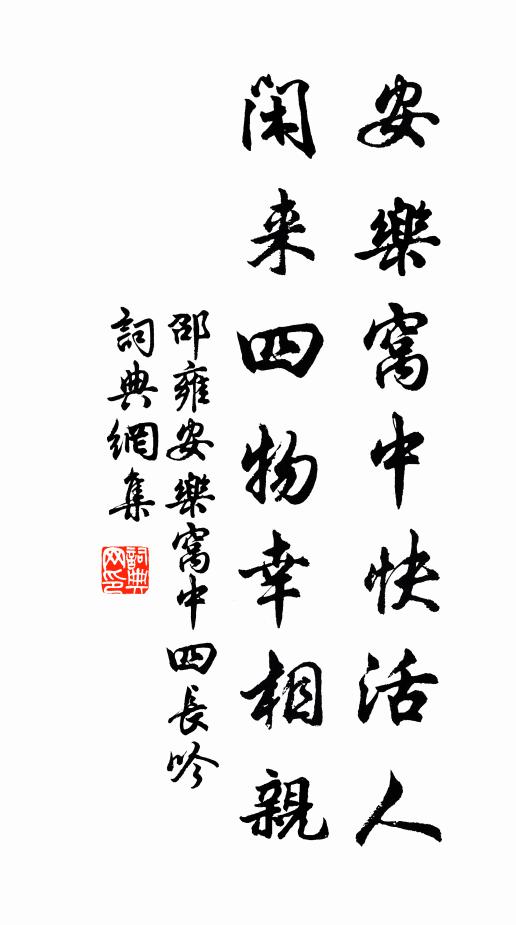 安樂窩中快活人
閑來四物幸相親
邵雍安樂窩中四長吟
詞典網集
詞典网印